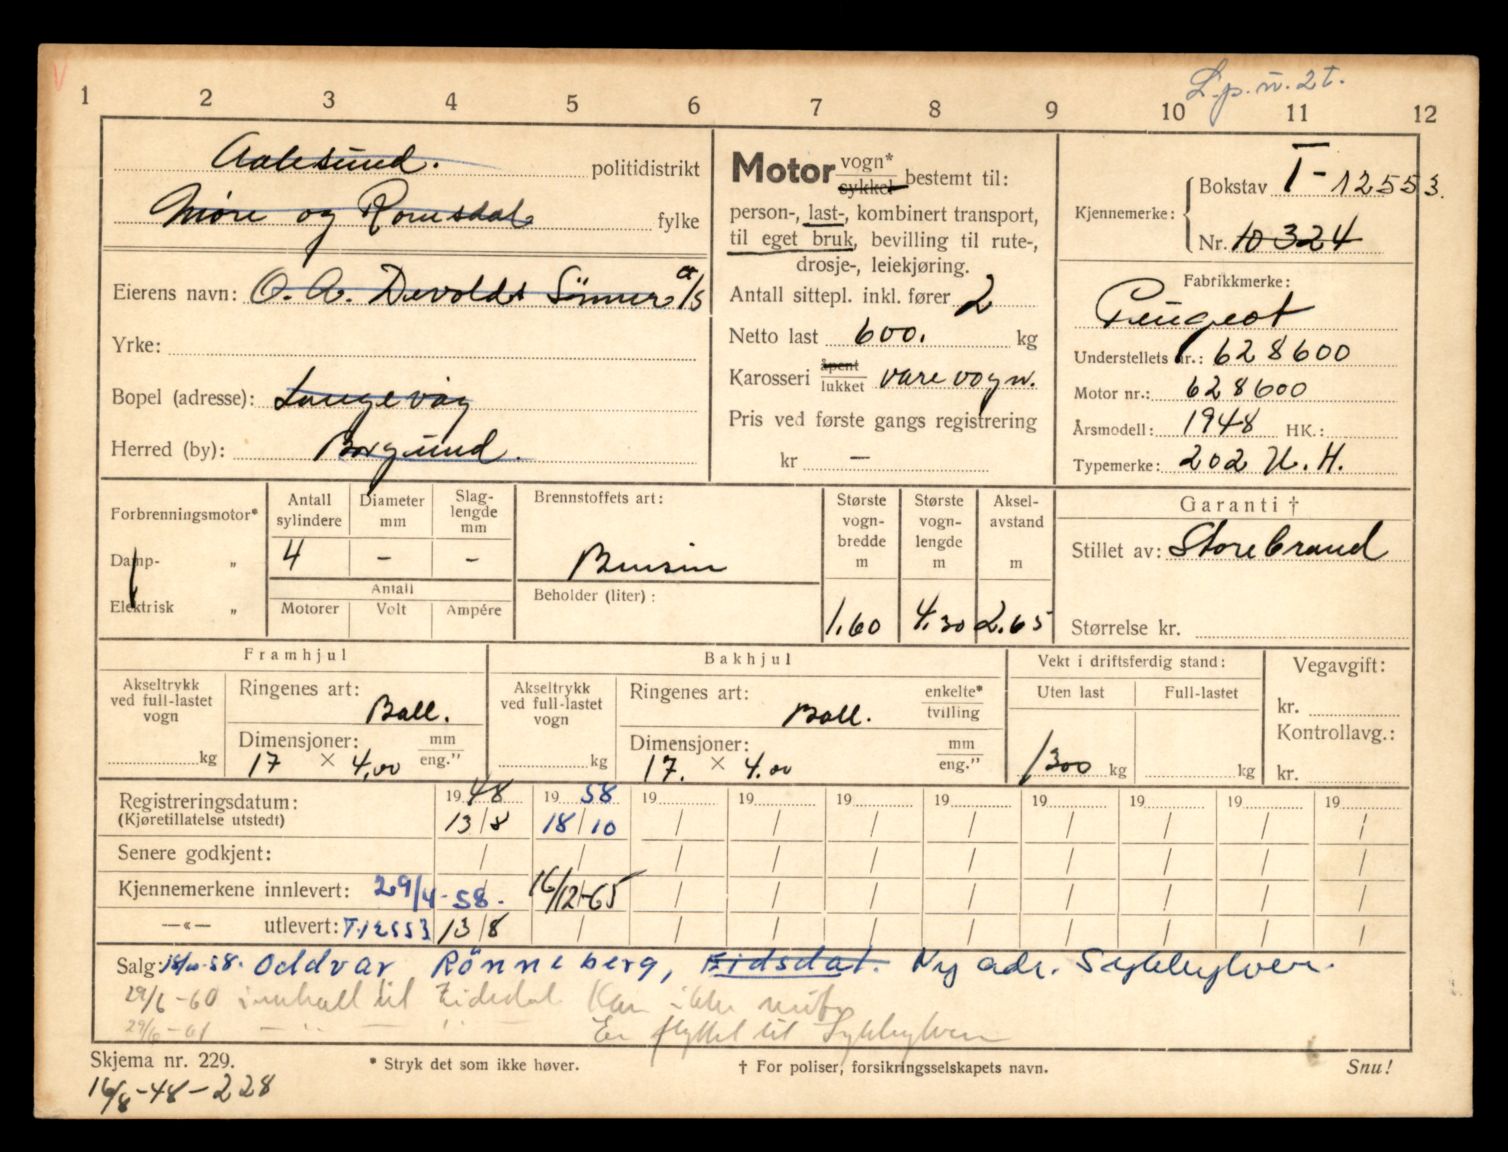 V
L.p.n. 2t.
1 2 3 4 5 6 7 8 9 10 11 12
Aalesund. politidistrikt
Møre og Romsdal fylke
Eierens navn: O. A. Devolds Sønner A/S
Yrke:
Bopel (adresse): Langevåg
Herred (by): Borgund.
Motor vogn* sykkel bestemt til:
person-, last-, kombinert transport,
til eget bruk, bevilling til rute-,
drosje-, leiekjøring.
Antall sittepl. inkl. fører 2
Netto last 600. kg
Karosseri åpent lukket varevogn.
Pris ved første gangs registrering
kr —
Kjennemerke: Bokstav T-12553.
Nr. 10324
Fabrikkmerke:
Peugeot
Understellets nr.: 628600
Motor nr.: 628600
Årsmodell: 1948 HK.:
Typemerke: 202 U.H.
Forbrenningsmotor*
Damp- „
Elektrisk „
Antall sylindere Diameter mm Slag-lengde mm
4 – –
Antall
Motorer Volt Ampére
Brennstoffets art:
Bensin
Beholder (liter):
Største vogn-bredde m Største vogn-lengde m Aksel-avstand m
1.60 4.30 2.65
Garanti †
Stillet av: Storebrand
Størrelse kr.
Framhjul
Akseltrykk ved full-lastet vogn kg
Ringenes art: Ball.
Dimensjoner: mm eng."
17 × 4.00
Bakhjul
Akseltrykk ved full-lastet vogn kg
Ringenes art: Ball. enkelte* tvilling
Dimensjoner: mm eng."
17. × 4.00
Vekt i driftsferdig stand:
Uten last Full-lastet
1300 kg kg
Vegavgift:
kr.
Kontrollavg.:
kr.
Registreringsdatum: 1948 1958 19 19 19 19 19 19 19 19
(Kjøretillatelse utstedt) 13/8 18/10 / / / / / / / /
Senere godkjent: / / / / / / / / / /
Kjennemerkene innlevert: 29/4-58. 16/12-65 / / / / / / / /
—«— utlevert: T-12553 13/8 / / / / / / / / /
Salg: 18/10-58. Oddvar Rønneberg, Eidsdal. Ny adr. Sykkylven.
29/6-60 innkalt til Eidsdal Kan ikke møte
29/6-61 — " — " Er flyttet til Sykkylven
Skjema nr. 229. * Stryk det som ikke høver. † For poliser, forsikringsselskapets navn. Snu!
16/8-48-228